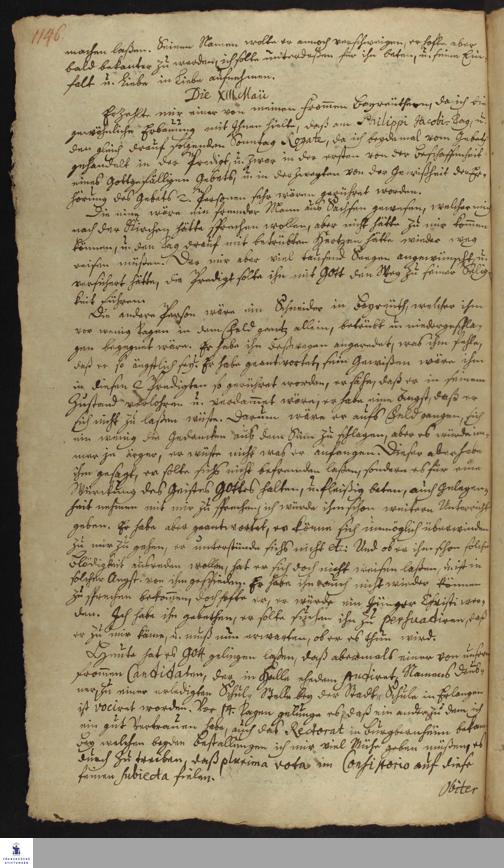 1146.
machen laßen. Seinen Namen wolte er annoch verschweigen, er hofte aber
bald bekanter zu werden, ich solte unterdeßen für ihn beten, u. seine Ein-
falt u. Liebe in Liebe aufnehmen.
Die XIII Maii
Erzehlte mir einer von meinen frommen Bayreuthern, da ich die
gewöhnliche Erbauung mit Ihnen hielt, daß am Philippi Jacobi-Tag, u.
den gleich drauf folgenden Sontag Rogate, da ich beydemal vom Gebet
gehandelt in der Predigt, u. zwar in der ersten von der Beschaffenheit
eines Gottgefälligen Gebets, u. in der zweyten von der Gewißheit der Er-
hörung des Gebets 2 Personen sehr wären gerühret worden.
Die eine wäre ein fremder Mann aus Sachsen gewesen, welcher mich
nach der Kirchen hätte sprechen wollen, aber nicht hätte zu mir kommen
können, u. den Tag drauf mit betrübten Hertzen hätte wieder weg
reisen müßen. Der mir aber viel tausend Seegen angewünscht, u.
versichert hätte, die Predigt solte ihm mit Gott den Weg zu seiner Selig-
keit führen.
Die andere Person wäre ein Schneider in Bayreuth, welcher ihm
vor wenig Tagen in dem Feld gantz allein, betrübt u. niedergeschla-
gen begegnet wäre. Er habe ihn deßwegen angeredet, was ihm fehle,
daß er so ängstlich sey. Er habe geantwortet, sein Gewißen wäre ihm
in diesen 2 Predigten so gerühret worden, er sehe, daß er in seinem
Zustand verlohren u. verdammt wäre, er habe eine Angst, daß er
sich nicht zu laßen wüste. Darum wäre er aufs Feld gangen, sich
ein wenig die Gedancken aus dem Sinn zu schlagen, aber es würde im-
mer zu ärger, er wüste nicht was er anfangen. Dieser aber habe
ihm gesagt, er solte sichs nicht befremden laßen, sondern es für eine
Würckung des Geistes Gottes halten, u. fleißig beten, auch Gelegen-
heit nehmen mit mir zu sprechen, ich würde ihm schon weitern Unterricht
geben. Er habe aber geantwortet, er könne sich unmöglich überwinden
zu mir zu gehen, er unterstünde sichs nicht etc: Und ob er ihm schon solche
Blödigkeit ausreden wollen, hat er sich doch nicht weisen laßen, u. ist in
solcher Angst von ihm geschieden. Er habe ihn auch nicht wieder können
zu sprechen bekommen, doch hoffe er, er würde ein Jünger Christi wer-
den. Ich habe ihn gebethen, er solte suchen ihn zu persuadiren, daß
er zu mir käme, u. muß nun erwarten, ob er es thun wird.
Heute hat es Gott gelingen laßen, daß abermals einer von unsern
frommen Candidaten, der in Halle ehedem studiret, Namens
zu einer erledigten Schul-Stelle bey der Stadt-Schule in Erlangen
ist vociret worden. Vor 14. Tagen gelunge es, daß ein ander, zu dem ich
ein gut Vertrauen habe, auch das Rectorat in Burgbernheim bekam
bey welchen beyden Bestallungen ich mir viel Mühe geben müßen, es
durch zu treiben, daß plurima vota im Consistorio auf diese
feinen Subiecta fielen.
Obiter
FRANCKESCHE
STIFTUNGEN